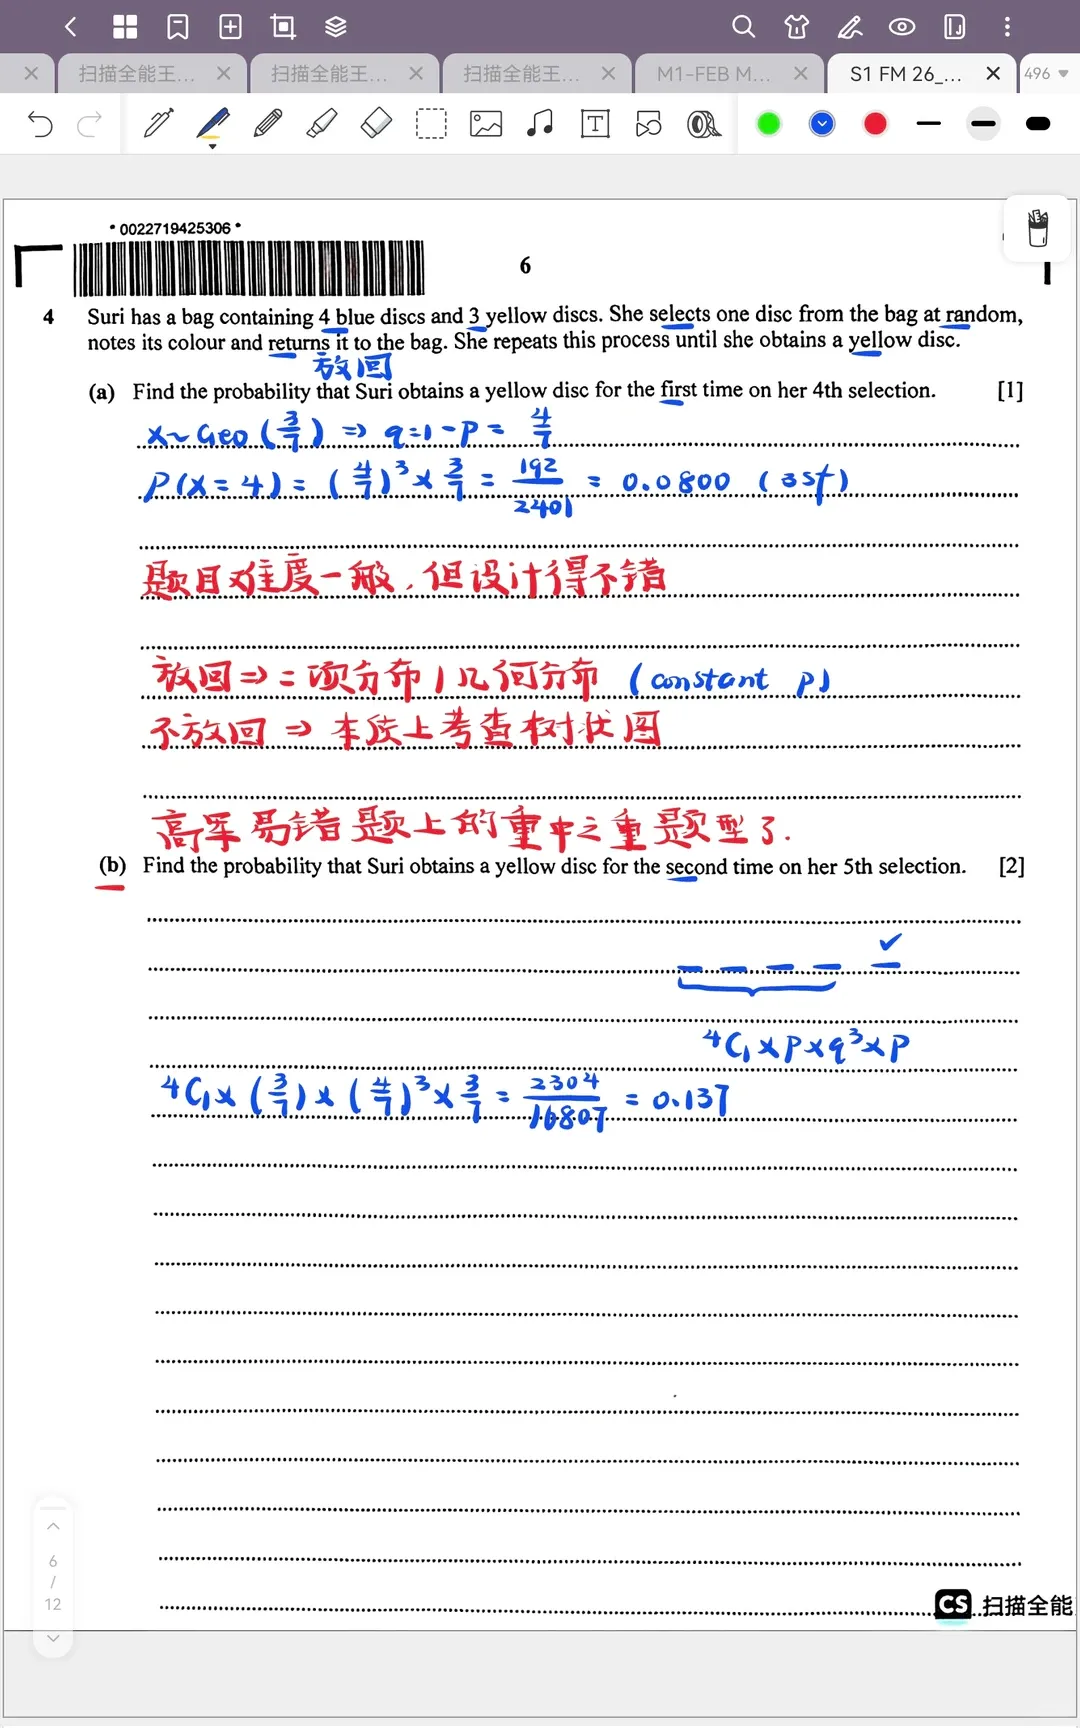 扫描全能王... 扫描全能王... 扫描全能王... M1-FEB M... S1 FM 26_... 496
* 0022719425306 *
6
4 Suri has a bag containing 4 blue discs and 3 yellow discs. She selects one disc from the bag at random,
notes its colour and returns it to the bag. She repeats this process until she obtains a yellow disc.
放回
(a) Find the probability that Suri obtains a yellow disc for the first time on her 4th selection. [1]
X~Geo(3/7) => q=1-p= 4/7
P(X=4)=(4/7)³×3/7=192/2401=0.0800 (3sf)
题目难度一般,但设计得不错
放回=>二项分布/几何分布 (constant p)
不放回=>本质上考查树状图
高军易错题上的重中之重题型了.
(b) Find the probability that Suri obtains a yellow disc for the second time on her 5th selection. [2]
⁴C₁×p×q³×p
⁴C₁×(3/7)×(4/7)³×3/7=2304/16807=0.137
6
/
12
CS 扫描全能